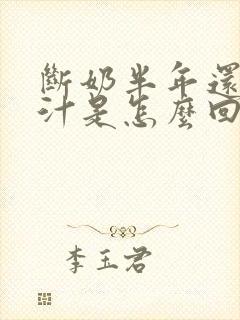 斷奶半年還
汁是怎麼回
李玉君